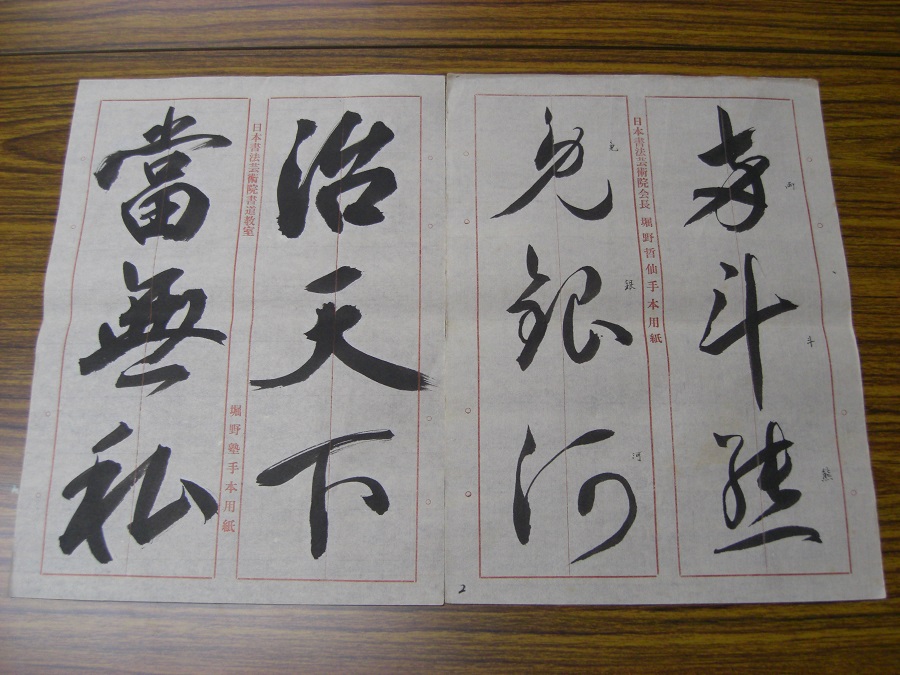 斗
斗
日本書法芸術院会長 堀野哲仙手本用紙
銀河
銀
河
2
治天下
日本書法芸術院書道教室
堀野塾手本用紙
當無私